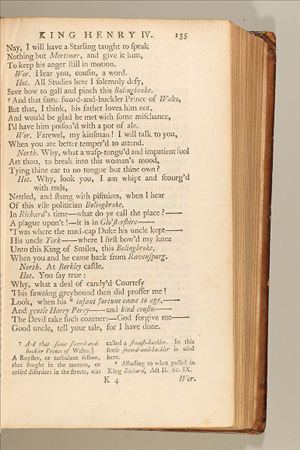 KING HENRY IV. 135
Nay, I will have a Starling taught to speak
Nothing but Mortimer, and give it him,
To keep his anger still in motion.
Wor. Hear you, cousin, a word.
Hot. All Studies here I solemnly defy,
Save how to gall and pinch this Bolingbroke.
⁷ And that same sword-and-buckler Prince of Wales,
But that, I think, his father loves him not,
And would be glad he met with some mischance,
I'd have him poison'd with a pot of ale.
Wor. Farewel, my kinsman! I will talk to you,
When you are better temper'd to attend.
North. Why, what a wasp-tongu'd and impatient fool
Art thou, to break into this woman's mood,
Tying thine ear to no tongue but thine own?
Hot. Why, look you, I am whipt and scourg'd
with rods,
Nettled, and stung with pismires, when I hear
Of this vile politician Bolingbroke.
In Richard's time—what do ye call the place?—
A plague upon't!—it is in Glo'stershire—
'Twas where the mad-cap Duke his uncle kept—
His uncle York—where I first bow'd my knee
Unto this King of Smiles, this Bolingbroke,
When you and he came back from Ravenspurg.
North. At Berkley castle.
Hot. You say true:
Why, what a deal of candy'd Courtesy
This fawning greyhound then did proffer me!
Look, when his ⁸ infant fortune came to age,—
And gentle Harry Percy—and kind cousin—
The Devil take such cozeners—God forgive me—
Good uncle, tell your tale, for I have done.
⁷ And that same sword-and-
buckler Prince of Wales.]
A Royster, or turbulent fellow,
that fought in the taverns, or
raised disorders in the streets, was
called a swash-buckler. In this
sense sword-and-buckler is used
here.
⁸ Alluding to what passed in
King Richard, Act II. Sc. IX.
K 4 Wor.